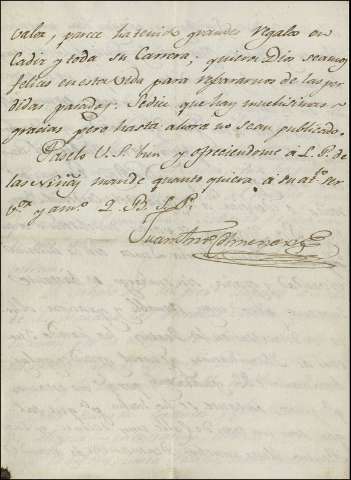 valor, y parece ha tenido grandes regalos en
Cadiz y toda su Carrera, quiera Dios seamos
felices en esta vida para repararnos de las per
didas pasadas. Se dice que hay muchisimas
gracias pero hasta ahora no se an publicado.
Paselo V. S. bien y ofreciendome á L. P. de
las niñas mande quanto quiera á su at.º ser
y am.º Q. B. S. P.
Juan Ant.º